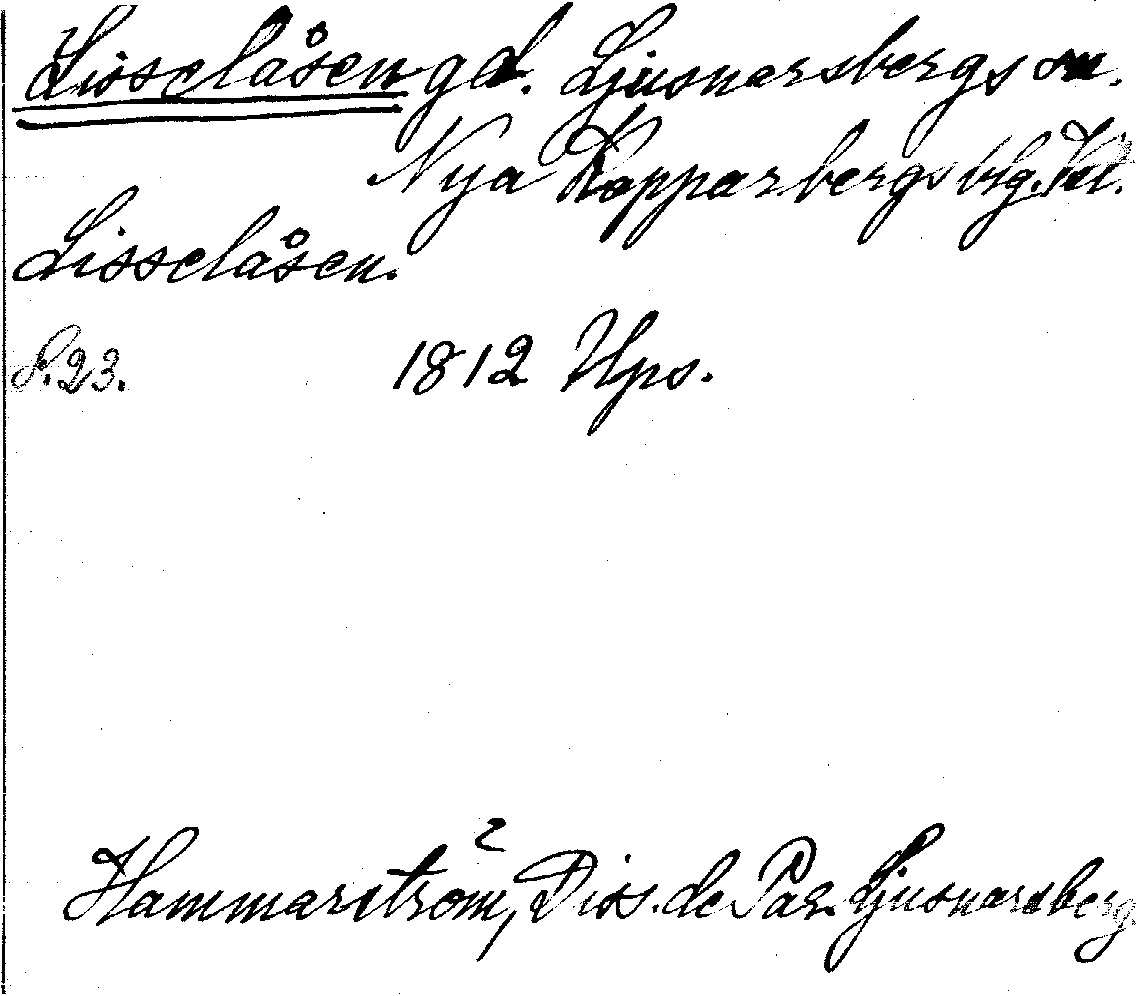 Lisselåsen gd. Ljusnarsbergs sn.
Nya Kopparbergs blg. Vstl.
Lisselåsen.
S. 23. 1812 Ups.
Hammarström, Diss. de Par. Ljusnarsberg